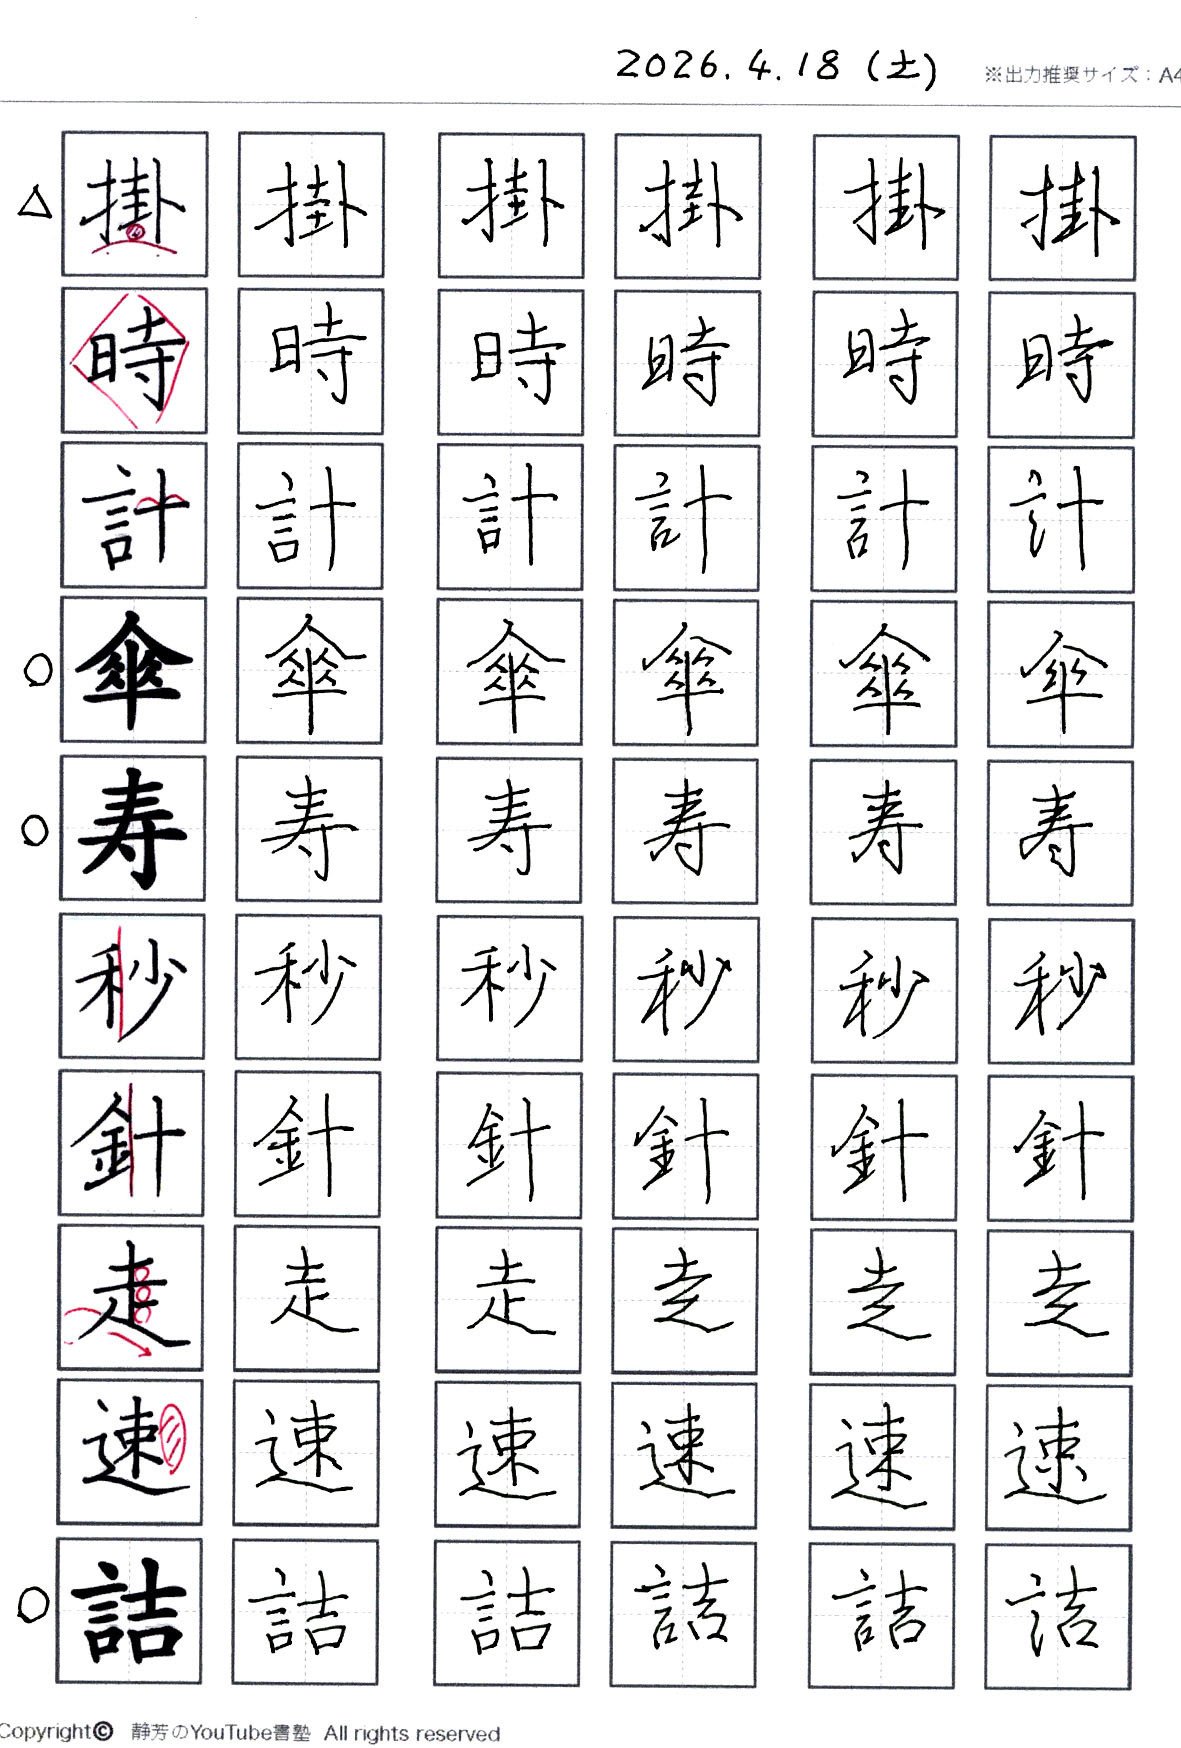 2026.4.18 (土)
※出力推奨サイズ：A4
△ 掛 掛 掛 掛 掛 掛
時 時 時 時 時 時
計 計 計 計 計 計
○ 傘 傘 傘 傘 傘 傘
○ 寿 寿 寿 寿 寿 寿
秒 秒 秒 秒 秒 秒
針 針 針 針 針 針
走 走 走 走 走 走
速 速 速 速 速 速
○ 詰 詰 詰 詰 詰 詰
Copyright© 静芳のYouTube書塾 All rights reserved